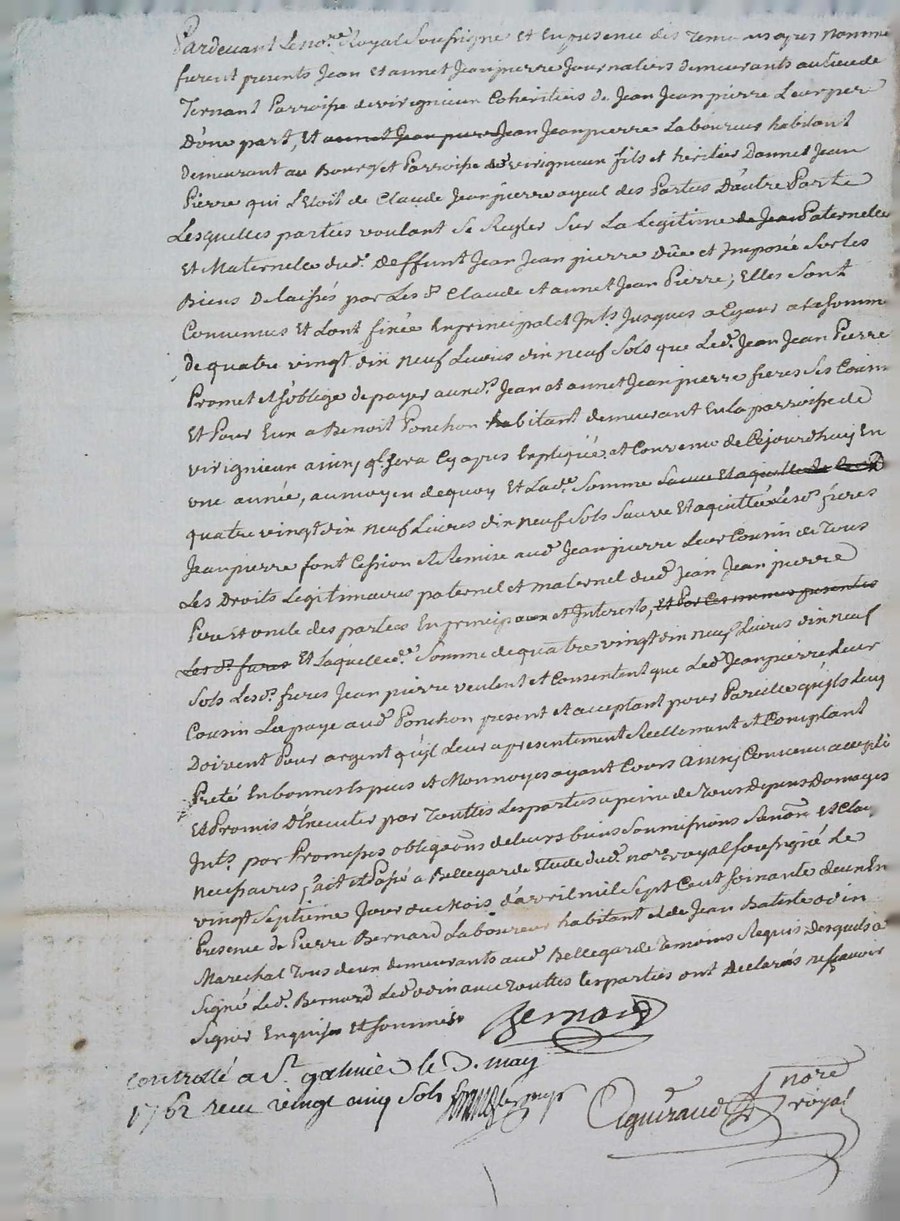 Pardevant Le nore. Royal Soussigné et En presence des Temoins apres nommé
furent presents Jean et annet Jeanpierre Journaliers demeurants au Lieu de
Ternant Parroisse de virignieux Coheritiers de Jean Jeanpierre Leur pere
D'une part, et annet Jean pierre Jean Jeanpierre Laboureur habitant
demeurant au Bourg et Parroisse de virignieux fils et heritier Dannet Jean
Pierre qui L'Etoit de Claude Jeanpierre ayeul des Parties D'autre Parte
Lesquelles parties voulant Se Regler Sur La Legitime de Jean Paternelle
Et Maternelle dud. deffunt Jean Jean pierre Düe et Imposée Sur Les
Biens Delaissés par Les d. Claude et annet Jean Pierre, Elles Sont
Convenues Et Lont fixée En principal et Ints. Jusques a Ce jour a La Somme
De quatre vingt dix neuf Livres dix neuf Sols que Led. Jean Jean Pierre
Promet et s'oblige de payer aux ds. Jean et annet Jean pierre freres Ses Cousin
Et Pour Eux a Benoit Ponchon habitant demeurant En La parroisse de
virignieux ainsy ql. Sera Cy apres Expliqué et Convenu de Cejourdhuy En
une année, au moyen de quoy Et Lad. Somme Sauve Et aquittée
quatre vingt dix neuf Livres dix neuf Sols Sauve Et aquittée Les d. freres
Jeanpierre font Cession et Remise aud. Jeanpierre Leur Cousin de Tous
Les Droits Legitimaires paternel et maternel dud. Jean Jean pierre
Pere et oncle des parties En principaux et Interets, Et Par Ces memes presentes
Les ds. freres Et Laquelle de. Somme de quatre vingt dix neuf Livres dix neuf
Sols Les d. freres Jean pierre veulent et Consentent que Led. Jeanpierre Leur
Cousin La paye aud. Ponchon present et acceptant pour Pareille qu'ils Luy
Doivent Pour argent qu'il Leur a presentement Reellement et Comptant
Preté En bonnes Especes et Monnoyes ayant Cours ainsy Convenu accepté
Et Promis D'Executer par Touttes Les parties a peine de Tous Depens Domages
Ints. par Promesses obligeons de leurs biens Soumissions Renoon. et Clau
neussaires fait et Passé a Bellegarde Etude dud. nore. royal soussigné Le
vingt Septieme Jour du Mois d'avril mil Sept Cent Soixante deux En
Presence de Pierre Bernard Laboureur habitant et de Jean Batiste odin
Marechal Tous deux demeurants aud. Bellegarde Temoins Requis desquels a
Signé Led. Bernard Led. odin avec Touttes Les parties ont declarés ne sçavoir
Signer Enquis et Sommés
Bernard
Controllé a St. galmier le 3. may
1762 reçu vingt cinq Sols
Aguiraud nore royal